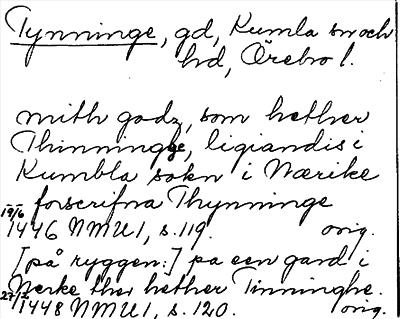 Tynninge, gd, Kumla sn och
hd, Örebro l.
mith godz, som hether
Thinninge, ligiandis i
Kumbla sokn i Nærike
forscrifna Thynninge
19/6
1446 NMU 1, s. 119. orig.
[på ryggen:] pa een gard i
Nerke ther hether Tinninghe.
27/2
1448 NMU 1, s. 120. orig.